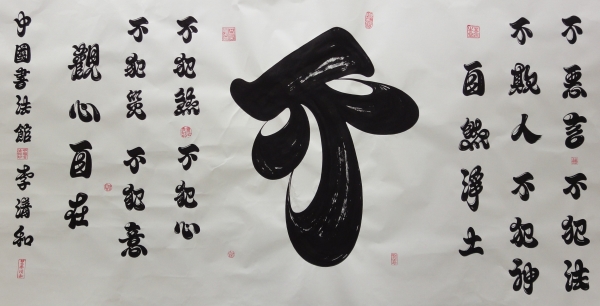 不惡言 不犯法
不欺人 不犯神
自然淨土
不
不犯 不犯心
不犯災 不犯意
觀心自在
中國書法館 李和